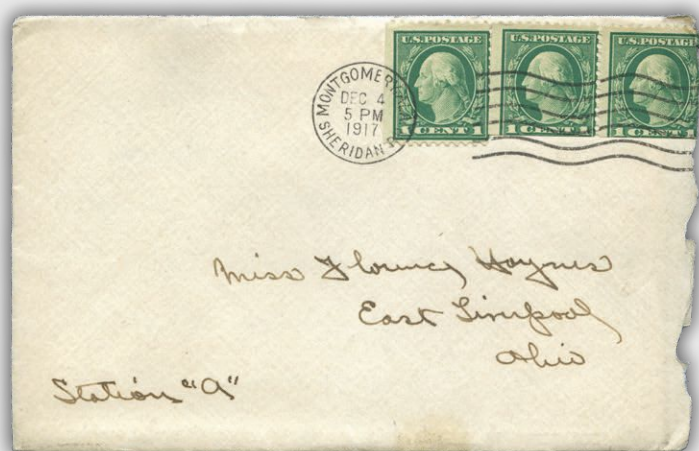 U.S.POSTAGE U.S.POSTAGE U.S.POSTAGE
1 CENT 1 1 CENT 1 1 CENT 1
MONTGOMERY
DEC 4
5 PM
1917
SHERIDAN
Miss Florence Haynes
East Liverpool,
Ohio
Station "A"